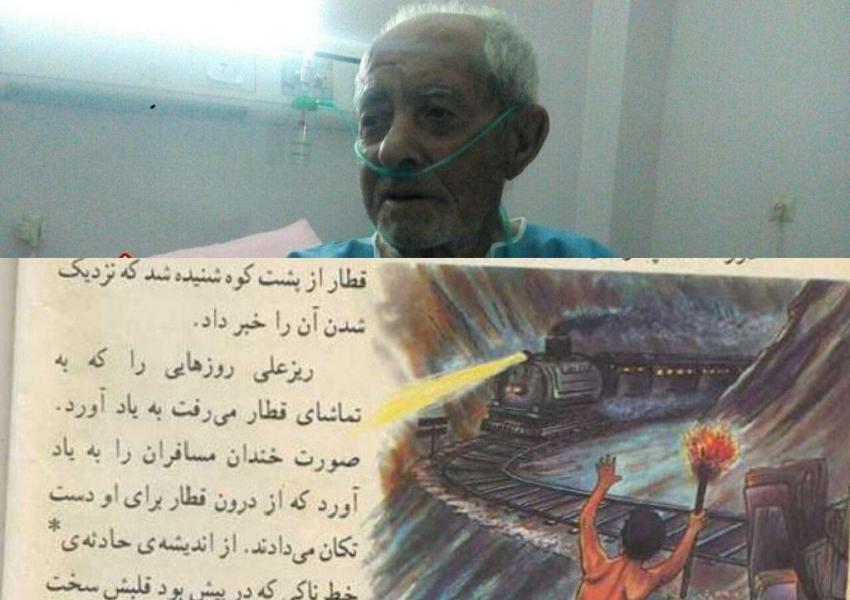 قطار از پشت کوه شنیده شد که نزدیک
شدن آن را خبر داد.
ریزعلی روزهایی را که به
تماشای قطار می‌رفت به یاد آورد.
صورت خندان مسافران را به یاد
آورد که از درون قطار برای او دست
تکان می‌دادند. از اندیشه‌ی حادثه‌ی*
خطرناکی که در پیش بود قلبش سخت